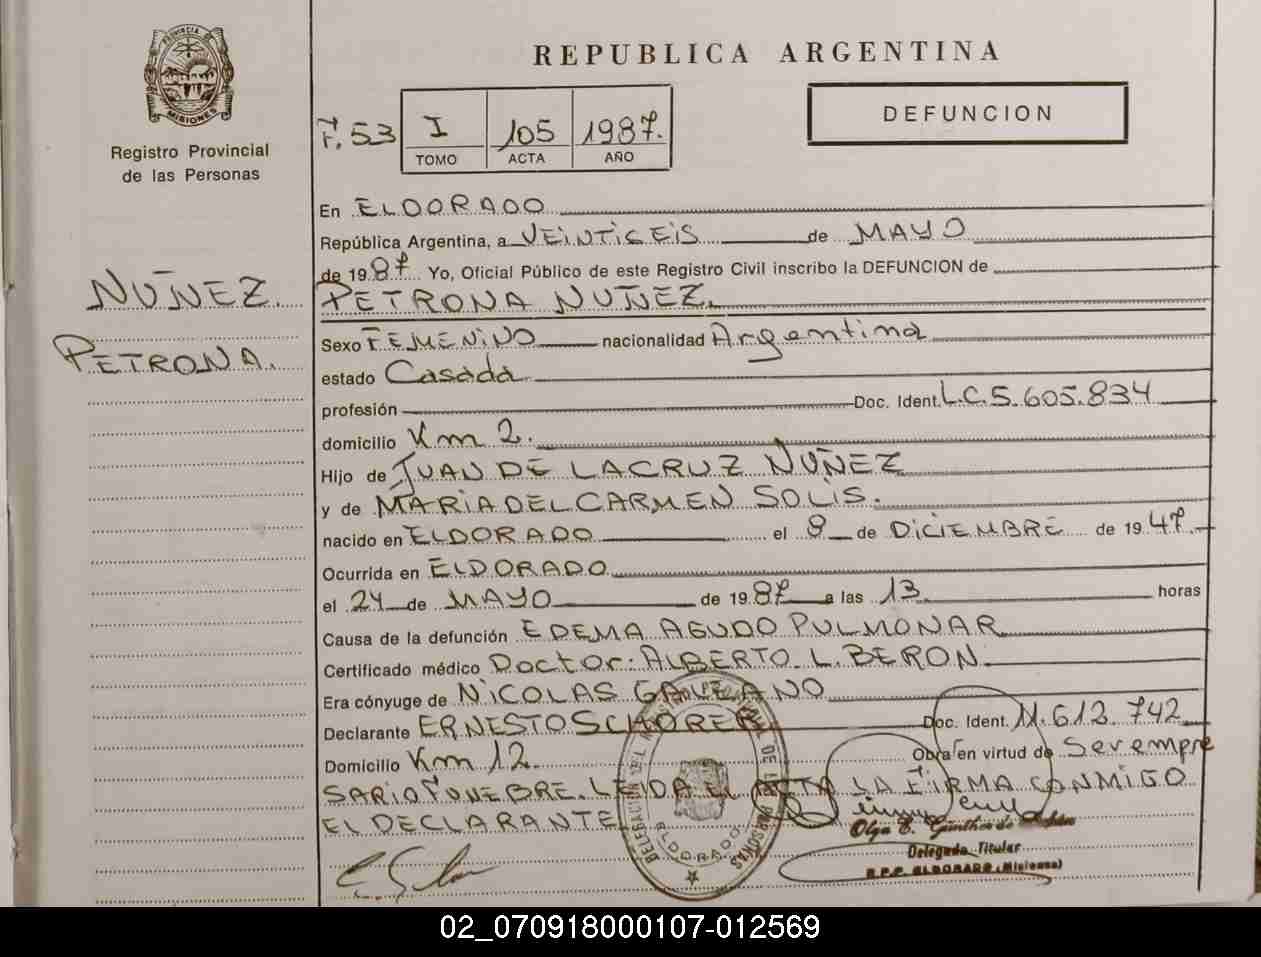 PROVINCIA DE
MISIONES
Registro Provincial
de las Personas
NUÑEZ
PETRONA.
REPUBLICA ARGENTINA
F.53
I
105
1987.
TOMO
ACTA
AÑO
DEFUNCION
En ELDORADO
República Argentina, a VEINTICEIS de MAYO
de 1987 Yo, Oficial Público de este Registro Civil inscribo la DEFUNCION de
PETRONA NUÑEZ.
Sexo FEMENINO nacionalidad Argentina
estado Casada
profesión Doc. Ident. L.C.5.605.834
domicilio Km 2.
Hijo de JUAN DE LA CRUZ NUÑEZ
y de MARIA DEL CARMEN SOLIS.
nacido en ELDORADO el 8 de DICIEMBRE de 1947
Ocurrida en ELDORADO
el 24 de MAYO de 1987 a las 13 horas
Causa de la defunción EDEMA AGUDO PULMONAR
Certificado médico Doctor: ALBERTO L. BERON
Era cónyuge de NICOLAS GALEANO
Declarante ERNESTO SCHORER Doc. Ident. M.612.742
Domicilio Km 12. Obra en virtud de Ser empre
SARIO FUNEBRE. LEIDA EL ACTA LA FIRMA CONMIGO
EL DECLARANTE
ELDORADO
Olga E.
Delegada Titular
R.P.P. ELDORADO (Misiones)
02_070918000107-012569